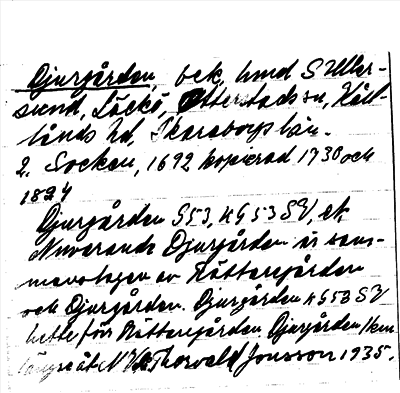 Djurgården, bek, hmd S Uller-
sund, Läckö, Otterstads sn, Kål-
lands hd, Skaraborgs län.
2. Socken, 1692 kopierad 1730 och
1824
Djurgården 953, KG 53 SV, ek
Nuvarande Djurgården är sam-
manslagen av Rättaregården
och Djurgården. Djurgården KG 53 SV
hette förr Rättaregården. Djurgården 1 km
längre åt NV. Thorvald Jonsson 1935.